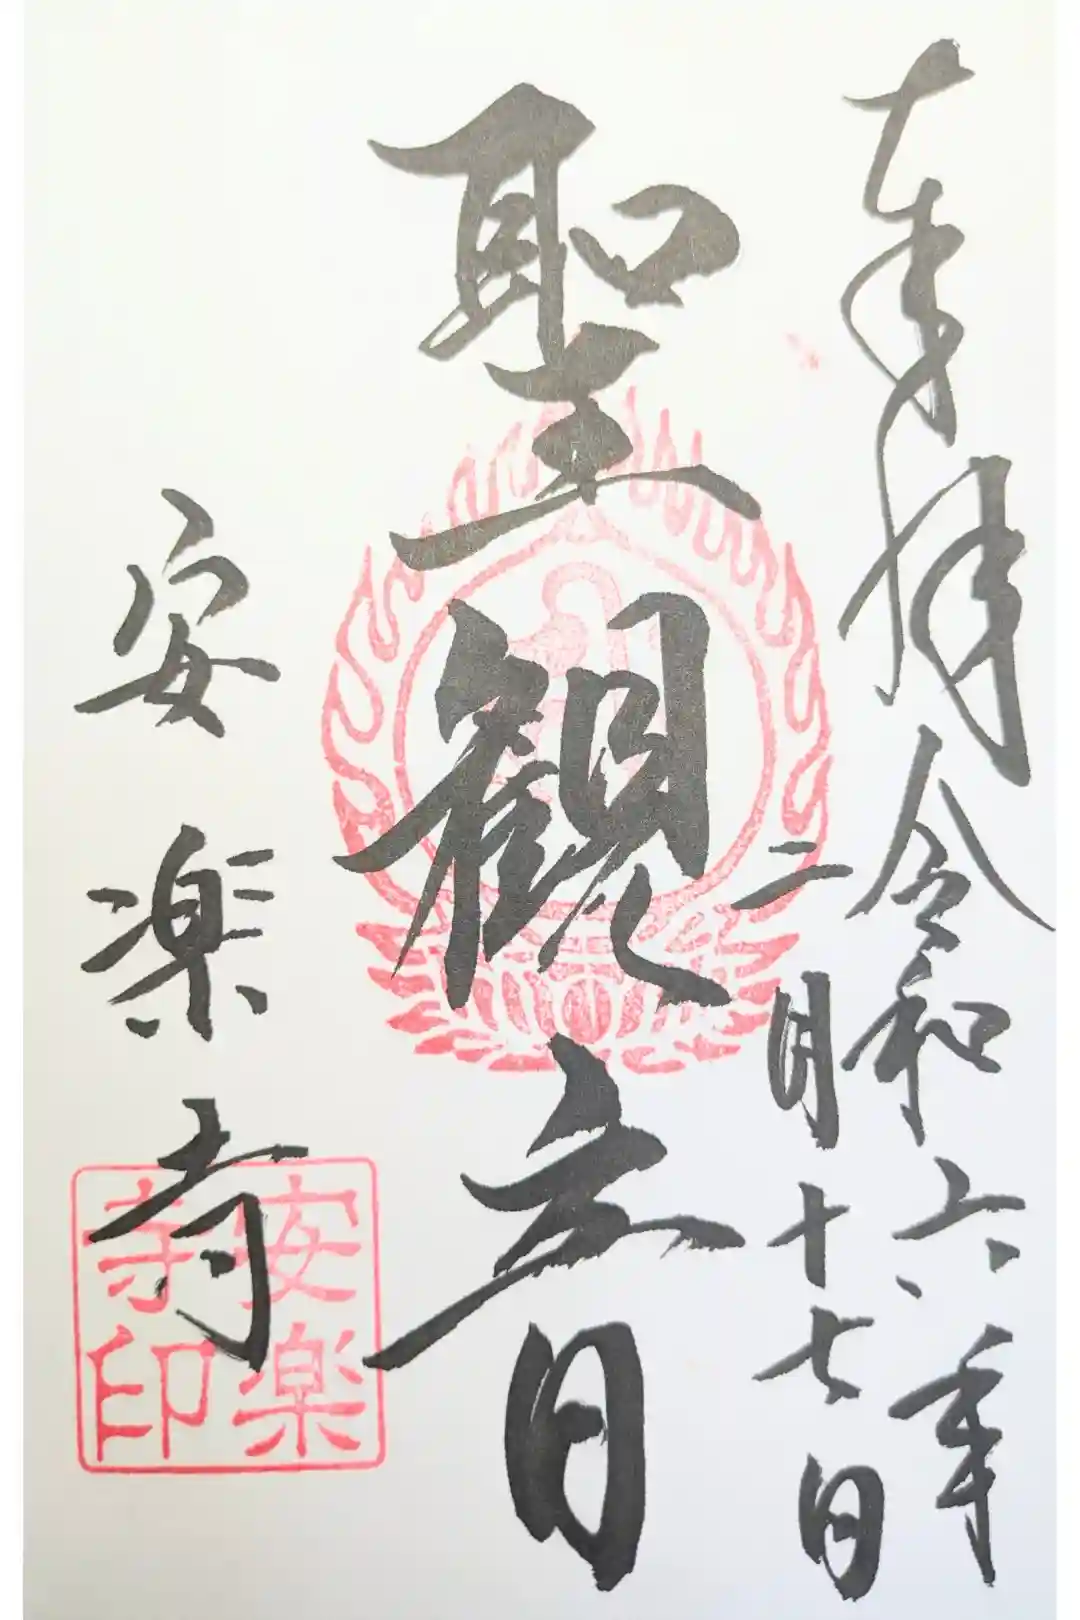 奉拝 令和六年
二月十七日
聖観音
安楽寺
安楽寺印